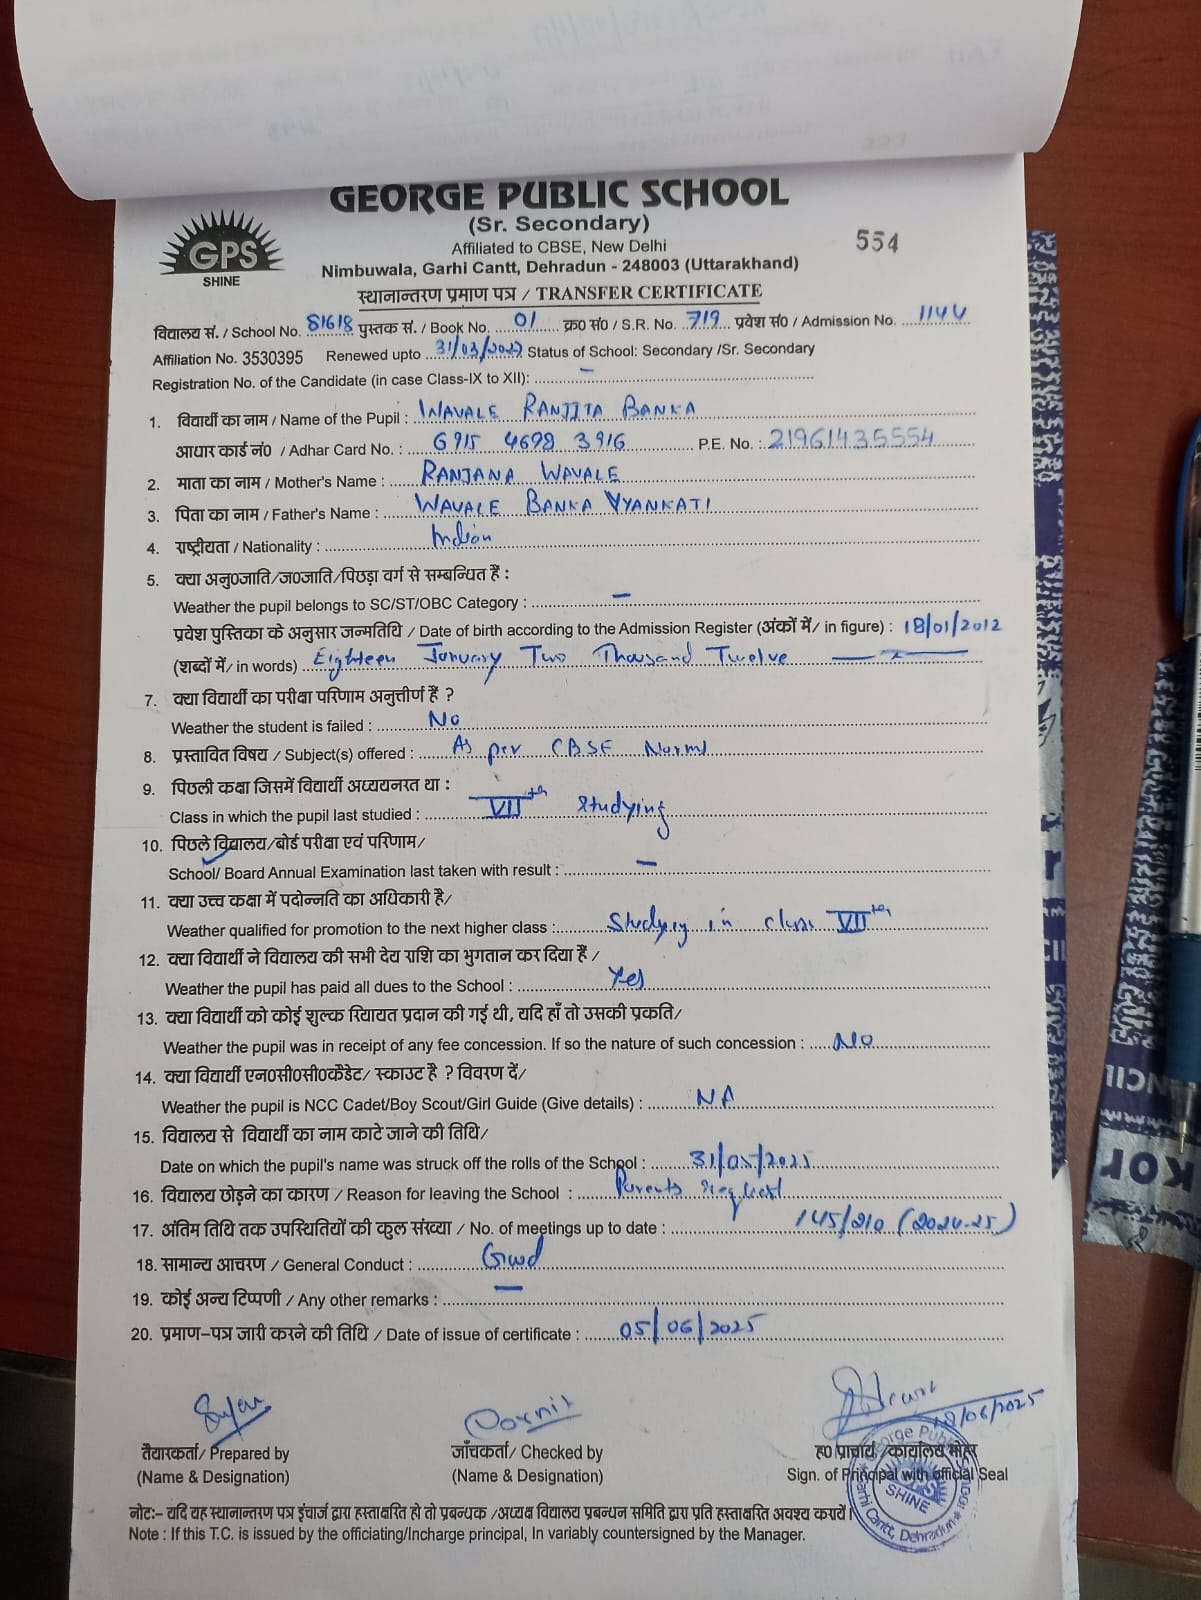 GEORGE PUBLIC SCHOOL
(Sr. Secondary)
GPS
SHINE
Affiliated to CBSE, New Delhi
554
Nimbuwala, Garhi Cantt, Dehradun - 248003 (Uttarakhand)
स्थानान्तरण प्रमाण पत्र / TRANSFER CERTIFICATE
विद्यालय सं. / School No. 81618 पुस्तक सं. / Book No. 01 क्र० सं० / S.R. No. 719 प्रवेश सं० / Admission No. 1144
Affiliation No. 3530395 Renewed upto 31/03/2027 Status of School: Secondary /Sr. Secondary
Registration No. of the Candidate (in case Class-IX to XII): –
1. विद्यार्थी का नाम / Name of the Pupil : WAVALE RANJITA BANKA
आधार कार्ड नं० / Adhar Card No. : 6915 4698 3916 P.E. No. : 21961435554
2. माता का नाम / Mother's Name : RANJANA WAVALE
3. पिता का नाम / Father's Name : WAVALE BANKA VYANKATI
4. राष्ट्रीयता / Nationality : Indian
5. क्या अनु०जाति/ज०जाति/पिछड़ा वर्ग से सम्बन्धित हैं :
Weather the pupil belongs to SC/ST/OBC Category : –
प्रवेश पुस्तिका के अनुसार जन्मतिथि / Date of birth according to the Admission Register (अंकों में/ in figure) : 18/01/2012
(शब्दों में/ in words) Eighteen January Two Thousand Twelve
7. क्या विद्यार्थी का परीक्षा परिणाम अनुत्तीर्ण हैं ?
Weather the student is failed : No
8. प्रस्तावित विषय / Subject(s) offered : As per CBSE Norms
9. पिछली कक्षा जिसमें विद्यार्थी अध्ययनरत था :
Class in which the pupil last studied : VIIth Studying
10. पिछले विद्यालय/बोर्ड परीक्षा एवं परिणाम/
School/ Board Annual Examination last taken with result : –
11. क्या उच्च कक्षा में पदोन्नति का अधिकारी है/
Weather qualified for promotion to the next higher class : Studying in class VIIth
12. क्या विद्यार्थी ने विद्यालय की सभी देय राशि का भुगतान कर दिया हैं /
Weather the pupil has paid all dues to the School : Yes
13. क्या विद्यार्थी को कोई शुल्क रियायत प्रदान की गई थी, यदि हाँ तो उसकी प्रकति/
Weather the pupil was in receipt of any fee concession. If so the nature of such concession : No
14. क्या विद्यार्थी एन०सी०सी०कैडेट/ स्काउट है ? विवरण दें/
Weather the pupil is NCC Cadet/Boy Scout/Girl Guide (Give details) : NA
15. विद्यालय से विद्यार्थी का नाम काटे जाने की तिथि/
Date on which the pupil's name was struck off the rolls of the School : 31/05/2025
16. विद्यालय छोड़ने का कारण / Reason for leaving the School : Parents request
17. अंतिम तिथि तक उपस्थितियों की कुल संख्या / No. of meetings up to date : 145/210 (2024-25)
18. सामान्य आचरण / General Conduct : Good
19. कोई अन्य टिप्पणी / Any other remarks : –
20. प्रमाण-पत्र जारी करने की तिथि / Date of issue of certificate : 05/06/2025
18/06/2025
तैयारकर्ता/ Prepared by जाँचकर्ता/ Checked by ह० प्राचार्य /कार्यालय मोहर
(Name & Designation) (Name & Designation) Sign. of Principal with official Seal
George Public School Garhi Cantt, Dehradun
GPS
SHINE
नोट:- यदि यह स्थानान्तरण पत्र इंचार्ज द्वारा हस्ताक्षरित हो तो प्रबन्धक /अध्यक्ष विद्यालय प्रबन्धन समिति द्वारा प्रति हस्ताक्षरित अवश्य करायें।
Note : If this T.C. is issued by the officiating/Incharge principal, In variably countersigned by the Manager.